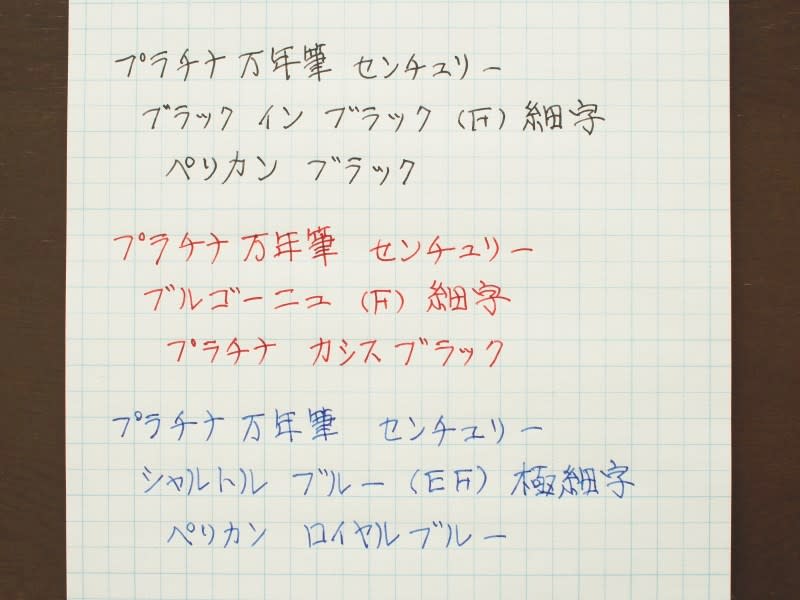 プラチナ 万年筆 センチュリー
ブラック イン ブラック (F) 細字
ペリカン ブラック
プラチナ 万年筆 センチュリー
ブルゴーニュ (F) 細字
プラチナ カシス ブラック
プラチナ 万年筆 センチュリー
シャルトル ブルー (EF) 極細字
ペリカン ロイヤル ブルー